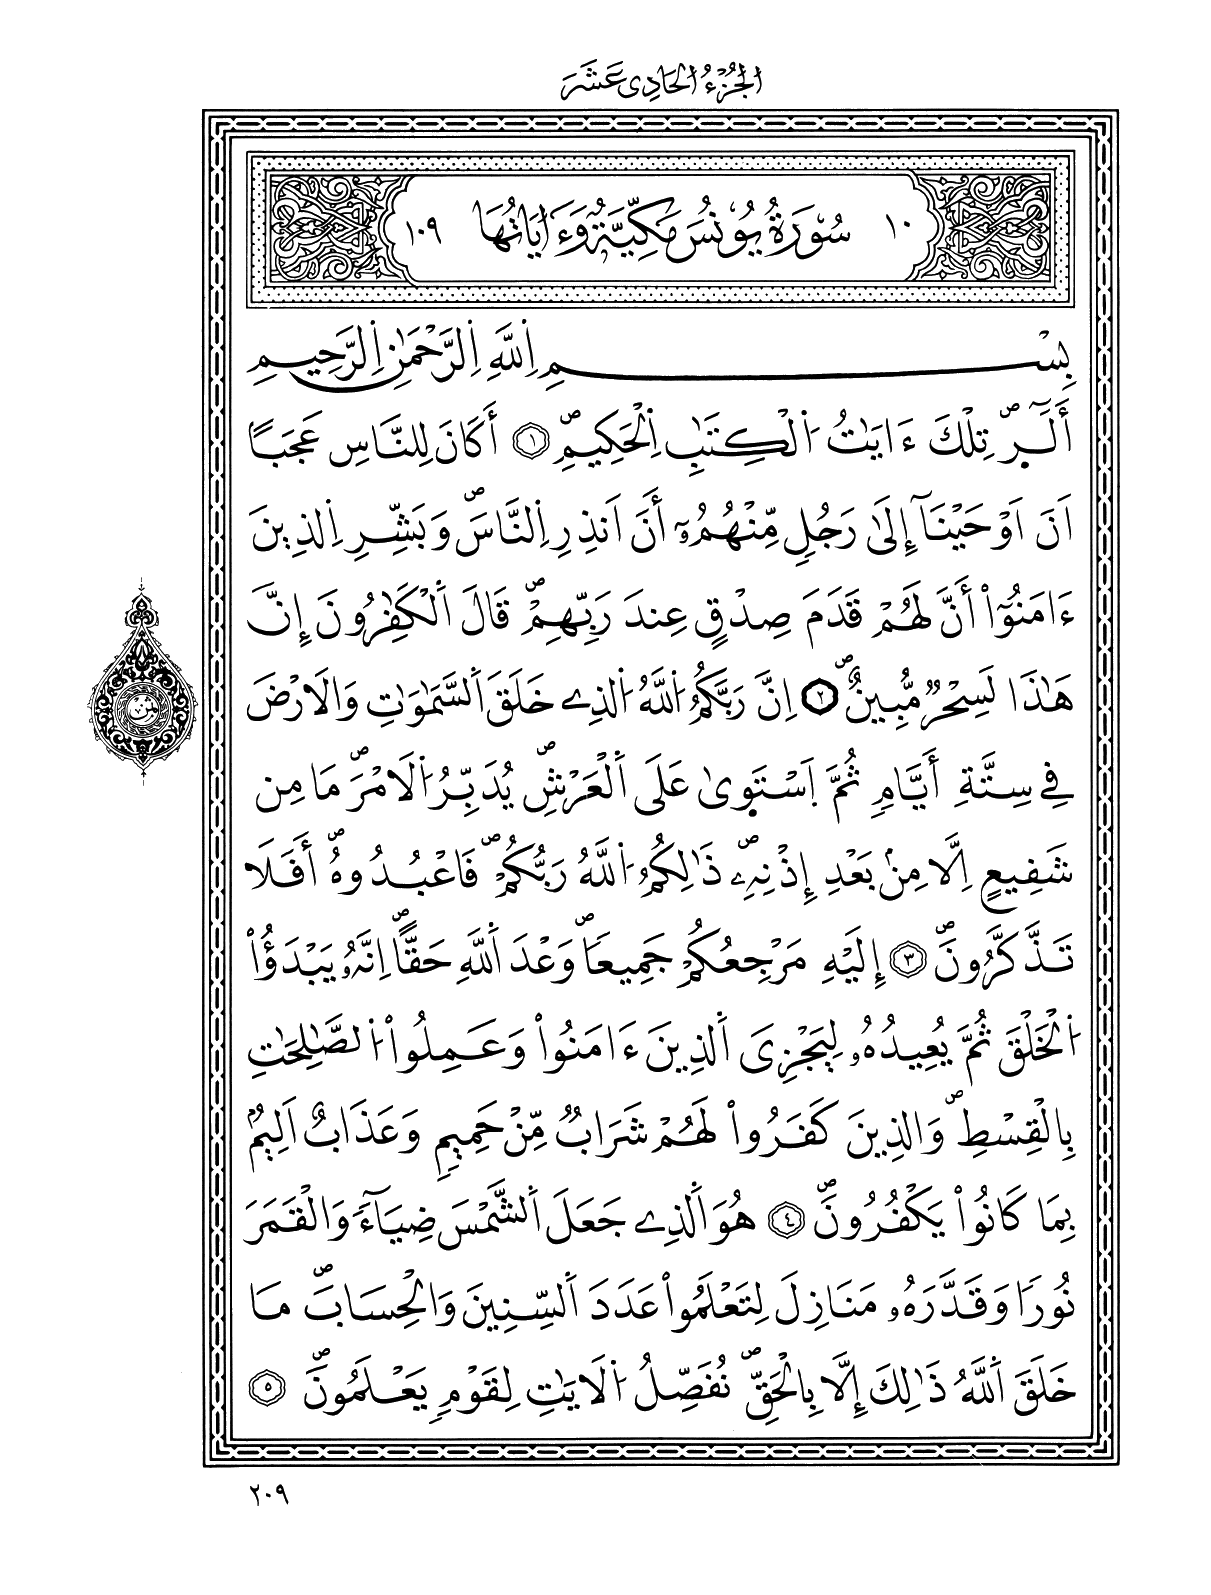 الجُزْءُ الحَادِي عَشَرَ
١٠ سُورَةُ يُونُسَ مَكِّيَّةٌ وَءَايَاتُهَا ١٠٩
بِسْمِ اِ۬للَّهِ اِ۬لرَّحْمَٰنِ اِ۬لرَّحِيمِ
أَلَٓر۪ۖ تِلْكَ ءَايَٰتُ اُ۬لْكِتَٰبِ اِ۬لْحَكِيمِۖ ١ أَكَانَ لِلنَّاسِ عَجَباً
اَنَ اَوْحَيْنَآ إِلَىٰ رَجُلٖ مِّنْهُمُۥٓ أَنَ اَنذِرِ اِ۬لنَّاسَۖ وَبَشِّرِ اِ۬لذِينَ
ءَامَنُوٓاْ أَنَّ لَهُمْ قَدَمَ صِدْقٍ عِندَ رَبِّهِمْۖ قَالَ اَ۬لْكَٰفِرُونَ إِنَّ
هَٰذَا لَسِحْرٞ مُّبِينٌۖ ٢ اِنَّ رَبَّكُمُ اُ۬للَّهُ اُ۬لذِے خَلَقَ اَ۬لسَّمَٰوَٰتِ وَالَارْضَ
فِے سِتَّةِ أَيَّامٖ ثُمَّ اَ۪سْتَو۪ىٰ عَلَى اَ۬لْعَرْشِۖ يُدَبِّرُ اُ۬لَامْرَۖ مَا مِن
شَفِيعٍ اِلَّا مِنۢ بَعْدِ إِذْنِهِۦۖ ذَٰلِكُمُ اُ۬للَّهُ رَبُّكُمْۖ فَاعْبُدُوهُۖ أَفَلَا
تَذَّكَّرُونَۖ ٣ إِلَيْهِ مَرْجِعُكُمْ جَمِيعاٗۖ وَعْدَ اَ۬للَّهِ حَقّاًۖ اِنَّهُۥ يَبْدَؤُاْ
اُ۬لْخَلْقَ ثُمَّ يُعِيدُهُۥ لِيَجْزِيَ اَ۬لذِينَ ءَامَنُواْ وَعَمِلُواْ اُ۬لصَّٰلِحَٰتِ
بِالْقِسْطِۖ وَالذِينَ كَفَرُواْ لَهُمْ شَرَابٞ مِّنْ حَمِيمٖ وَعَذَابٌ اَلِيمُۢ
بِمَا كَانُواْ يَكْفُرُونَۖ ٤ هُوَ اَ۬لذِے جَعَلَ اَ۬لشَّمْسَ ضِيَآءٗ وَالْقَمَرَ
نُوراٗ وَقَدَّرَهُۥ مَنَازِلَ لِتَعْلَمُواْ عَدَدَ اَ۬لسِّنِينَ وَالْحِسَابَۖ مَا
خَلَقَ اَ۬للَّهُ ذَٰلِكَ إِلَّا بِالْحَقِّۖ نُفَصِّلُ اُ۬لَايَٰتِ لِقَوْمٖ يَعْلَمُونَۖ ٥
٢٠٩